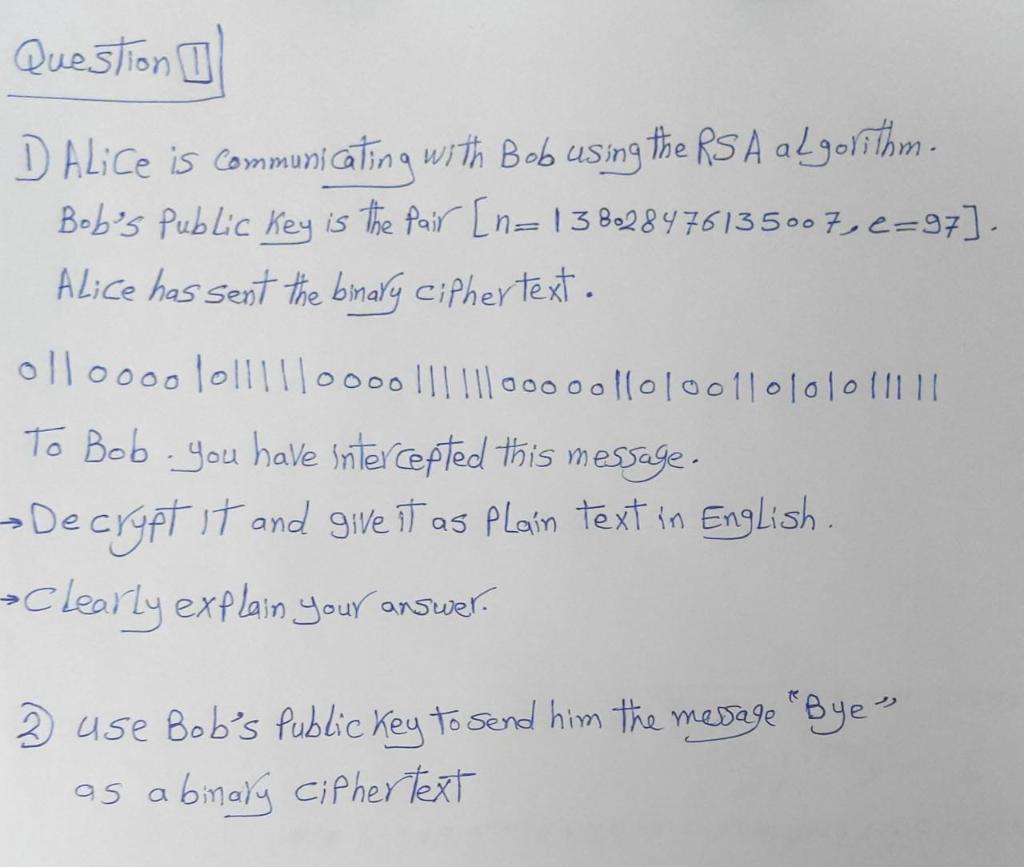 Question 1
1) Alice is communicating with Bob using the RSA algorithm.
Bob's Public Key is the Pair [n=138028476135007, e=97].
Alice has sent the binary ciphertext.
01100001011111000011111100000110100110101011111
To Bob. you have intercepted this message.
→Decrypt it and give it as plain text in English.
→Clearly explain your answer.
2) use Bob's Public Key to send him the message "Bye"
as a binary ciphertext